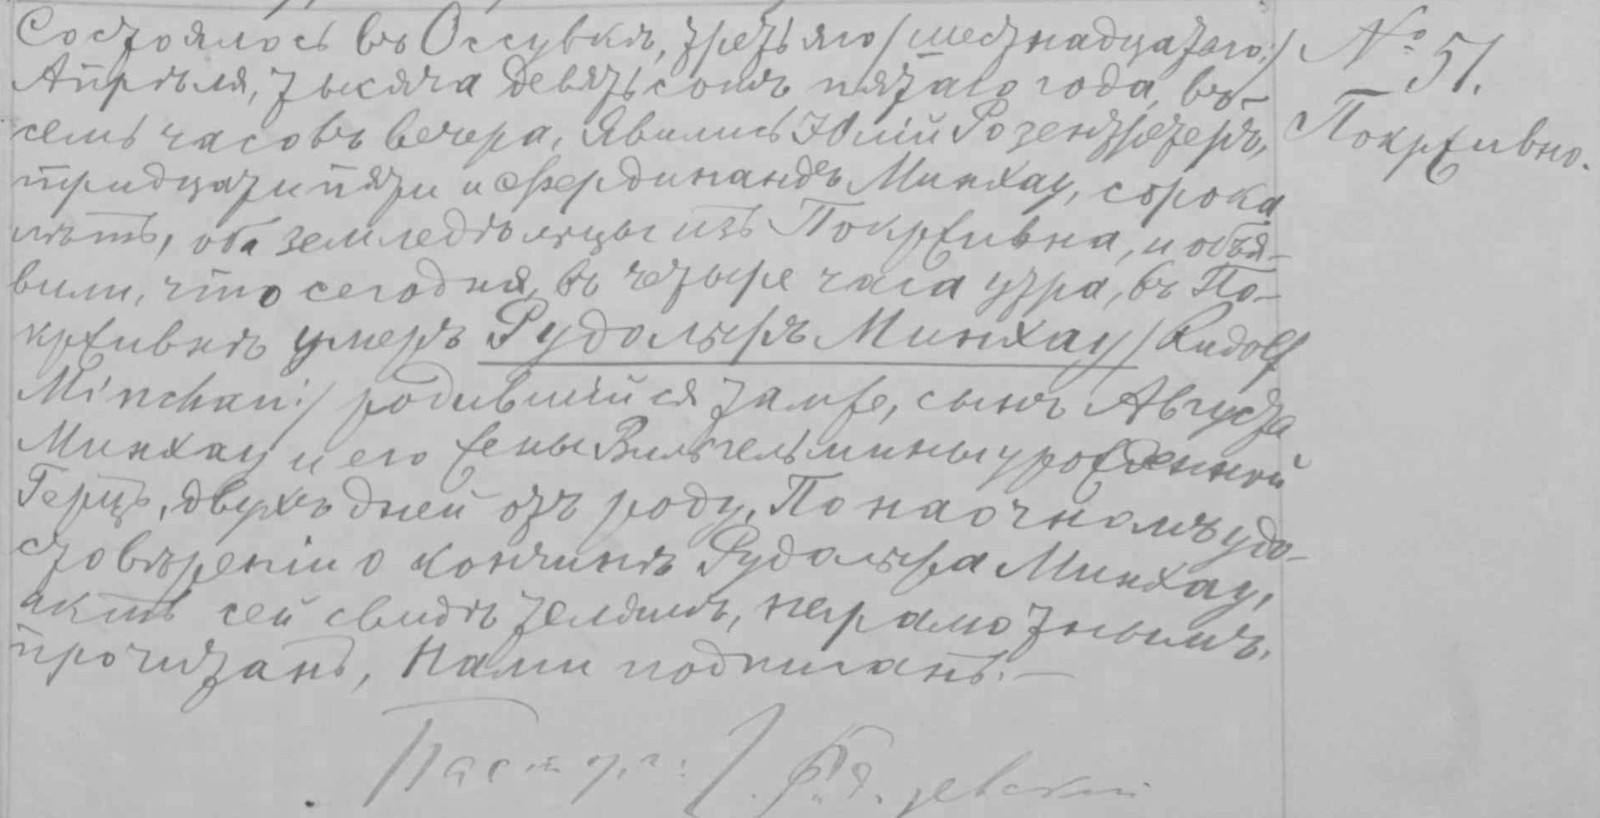 Состоялось въ Оссувкѣ, третьяго /шестнадцатаго:/
Апрѣля, тысяча девятьсотъ пятаго года, въ
семь часовъ вечера, Явились Юлій Розентретеръ,
тридцати пяти и Фердинандъ Минхау, сорока
лѣтъ, оба земледѣльцы изъ Покржывна, и объя-
вили, что сегодня, въ четыре часа утра, въ По-
кржывнѣ умеръ Рудольфъ Минхау /Rudolf
Minchau:/ родившійся тамже, сынъ Августа
Минхау и его жены Вильгельмины урожденной
Герцъ, двухъ дней отъ роду, По наочномъ удо-
стовѣреніи о кончинѣ Рудольфа Минхау,
актъ сей свидѣтелямъ, неграмотнымъ,
прочитанъ, Нами подписанъ.—
Пасторъ:
№ 51.
Покржывно.